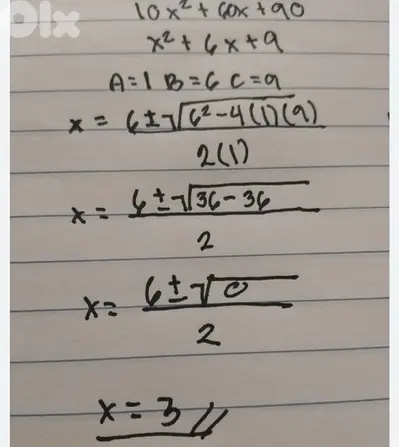 OLX
10x² + 60x + 90
x² + 6x + 9
A=1 B=6 C=9
x = 6 ± √6² - 4(1)(9)
2(1)
x = 6 ± √36 - 36
2
x = 6 ± √0
2
x = 3 //